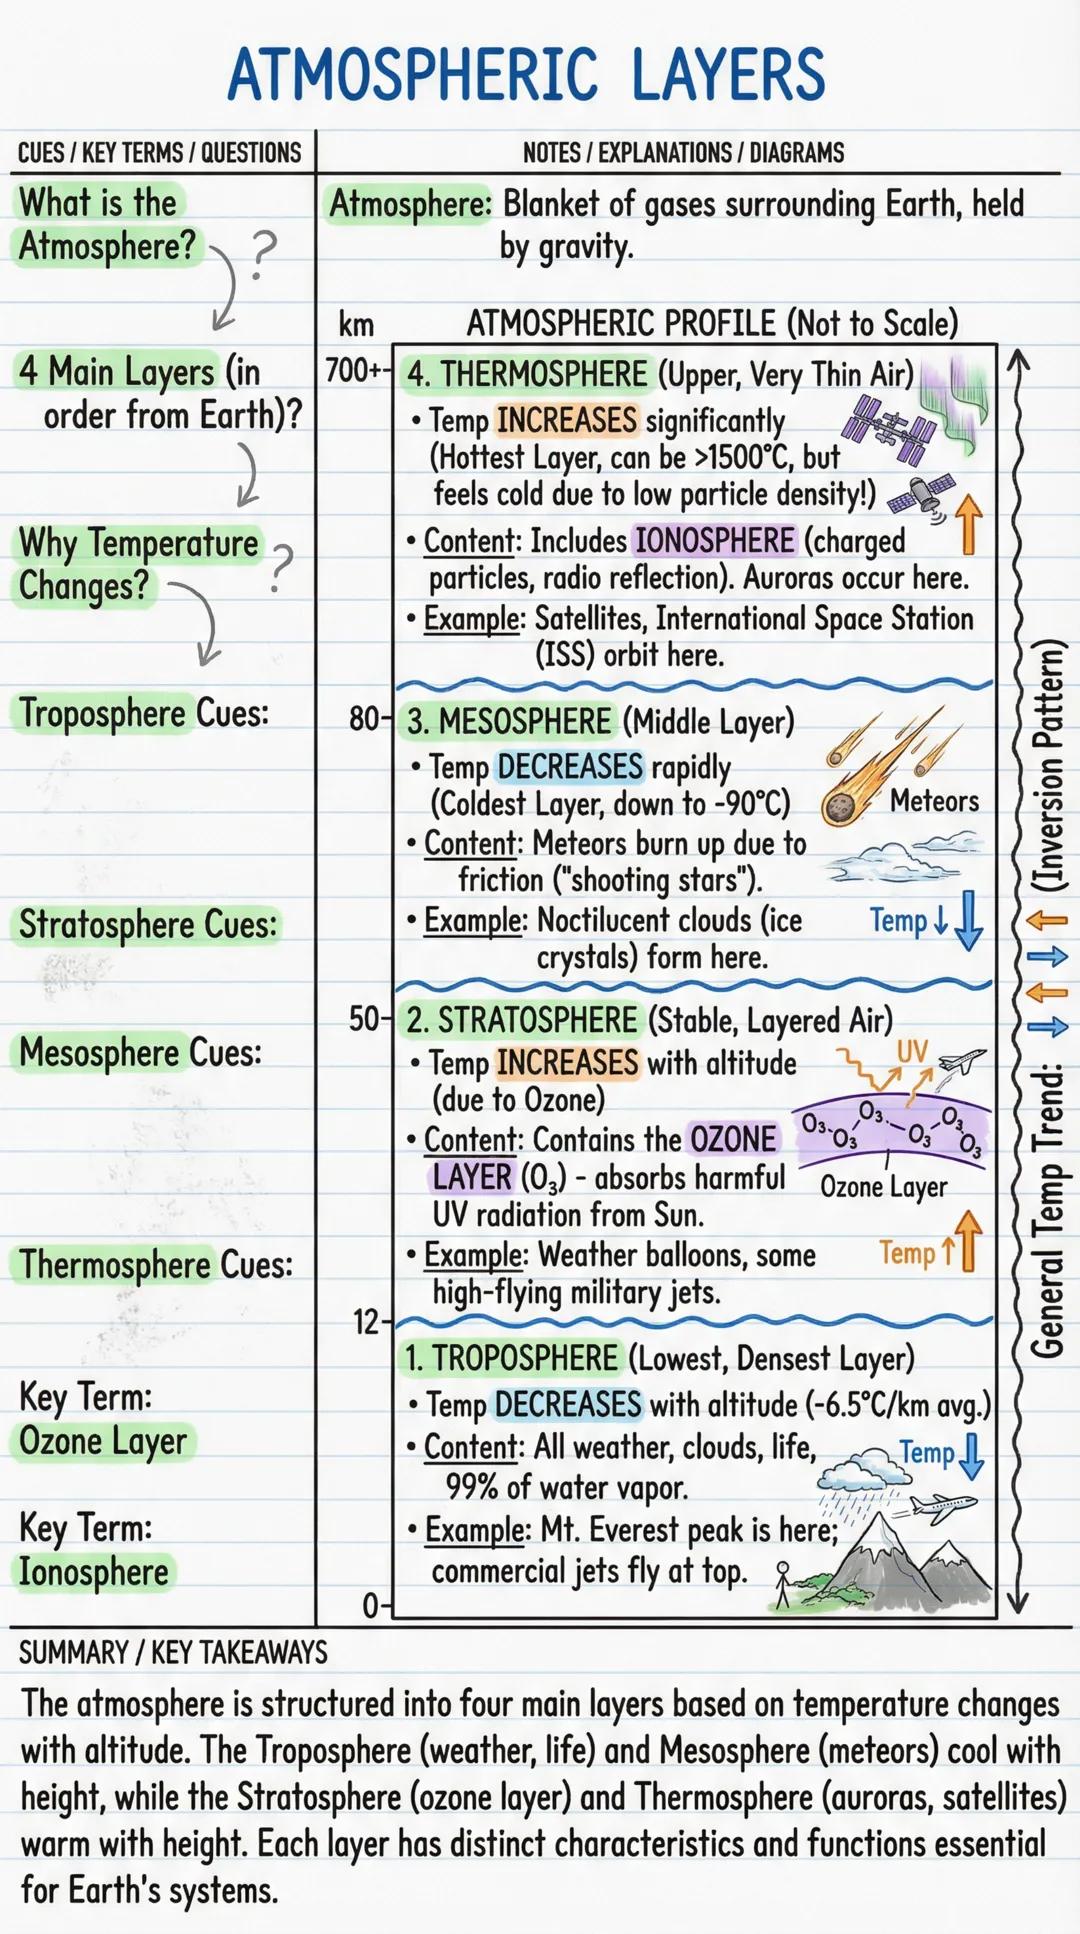 ATMOSPHERIC LAYERS
CUES / KEY TERMS / QUESTIONS
NOTES / EXPLANATIONS / DIAGRAMS
What is the
Atmosphere?
?
4 Main Layers (in
order from Earth)?
Why Temperature
Changes?
?
Troposphere Cues:
Stratosphere Cues:
Mesosphere Cues:
Thermosphere Cues:
Key Term:
Ozone Layer
Key Term:
Ionosphere
Atmosphere: Blanket of gases surrounding Earth, held
by gravity.
km
ATMOSPHERIC PROFILE (Not to Scale)
700+
4. THERMOSPHERE (Upper, Very Thin Air)
• Temp INCREASES significantly
(Hottest Layer, can be >1500°C, but
feels cold due to low particle density!)
• Content: Includes IONOSPHERE (charged
particles, radio reflection). Auroras occur here.
• Example: Satellites, International Space Station
(ISS) orbit here.
80
3. MESOSPHERE (Middle Layer)
• Temp DECREASES rapidly
(Coldest Layer, down to -90°C)
Meteors
• Content: Meteors burn up due to
friction ("shooting stars").
• Example: Noctilucent clouds (ice
crystals) form here.
Temp ↓
50
2. STRATOSPHERE (Stable, Layered Air)
• Temp INCREASES with altitude
(due to Ozone)
UV
• Content: Contains the OZONE
LAYER (O₃) - absorbs harmful
UV radiation from Sun.
O₃ O₃ O₃ O₃ O₃ O₃
Ozone Layer
• Example: Weather balloons, some
high-flying military jets.
Temp ↑
12
1. TROPOSPHERE (Lowest, Densest Layer)
• Temp DECREASES with altitude (-6.5°C/km avg.)
• Content: All weather, clouds, life,
99% of water vapor.
Temp
• Example: Mt. Everest peak is here;
commercial jets fly at top.
0
General Temp Trend: → ← → ← (Inversion Pattern)
SUMMARY / KEY TAKEAWAYS
The atmosphere is structured into four main layers based on temperature changes
with altitude. The Troposphere (weather, life) and Mesosphere (meteors) cool with
height, while the Stratosphere (ozone layer) and Thermosphere (auroras, satellites)
warm with height. Each layer has distinct characteristics and functions essential
for Earth's systems.